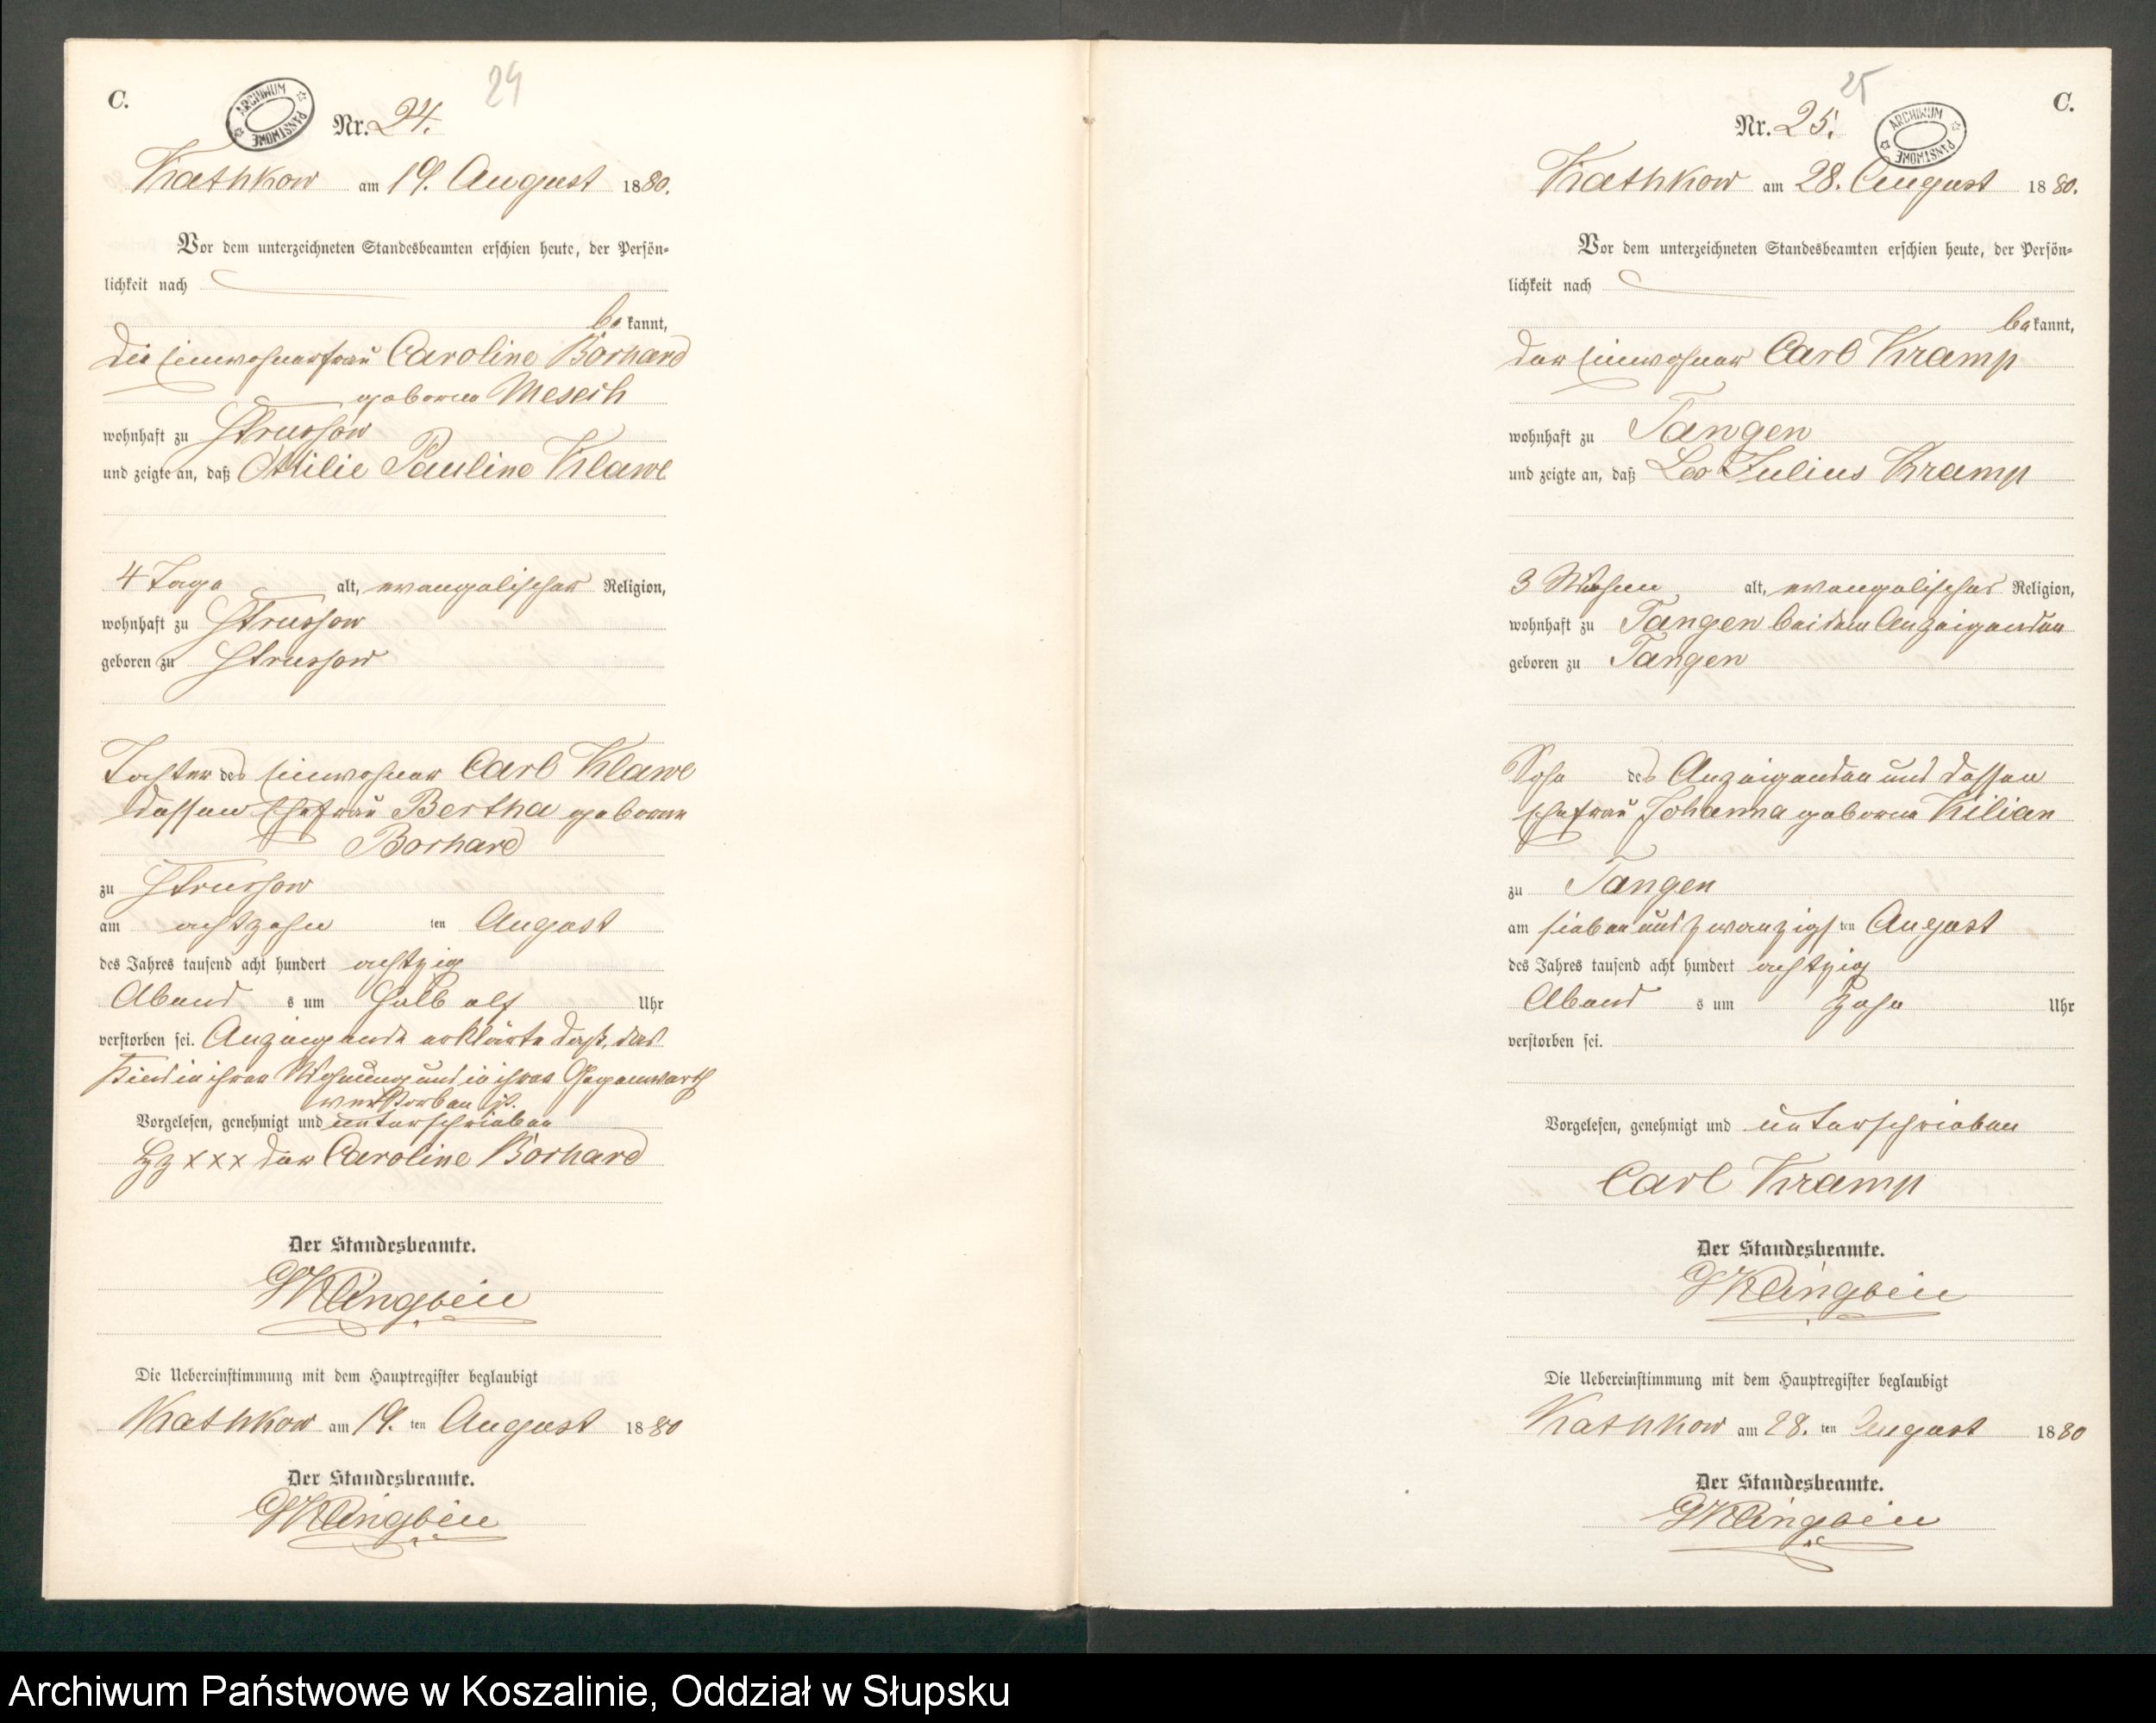 C.
ARCHIWUM PAŃSTWOWE
24
Nr. 24.
Kathkow am 19. August 1880.
Vor dem unterzeichneten Standesbeamten erschien heute, der Persön-
lichkeit nach
bekannt,
die Einwohnerfrau Caroline Borhard
geborne
wohnhaft zu Strussow
und zeigte an, daß Ottilie Pauline Klawe
4 Tage alt, evangelischer Religion,
wohnhaft zu Strussow
geboren zu Strussow
Tochter des Einwohner Carl Klawe
dessen Ehefrau Bertha geborne
Borhard
zu Strussow
am achtzehn ten August
des Jahres tausend acht hundert achtzig
Abend s um halb elf Uhr
verstorben sei. Anzeigende erklärte daß, das
Kind in ihrer Wohnung und in ihrer Gegenwarth
verstorben ist.
Vorgelesen, genehmigt und unterschrieben
Hz xxx der Caroline Borhard
Der Standesbeamte.
Klingbeil
Die Uebereinstimmung mit dem Hauptregister beglaubigt
Kathkow am 19. ten August 1880
Der Standesbeamte.
Klingbeil
25
C.
Nr. 25.
ARCHIWUM PAŃSTWOWE
Kathkow am 28. August 1880.
Vor dem unterzeichneten Standesbeamten erschien heute, der Persön-
lichkeit nach
bekannt,
der Einwohner Carl Kramp
wohnhaft zu Tangen
und zeigte an, daß Leo Julius Kramp
3 Wochen alt, evangelischer Religion,
wohnhaft zu Tangen bei dem Anzeigenden
geboren zu Tangen
Sohn des Anzeigenden und dessen
Ehefrau Johanna geborne Kilian
zu Tangen
am sieben und zwanzigs ten August
des Jahres tausend acht hundert achtzig
Abend s um zehn Uhr
verstorben sei.
Vorgelesen, genehmigt und unterschrieben
Carl Kramp
Der Standesbeamte.
Klingbeil
Die Uebereinstimmung mit dem Hauptregister beglaubigt
Kathkow am 28. ten August 1880
Der Standesbeamte.
Klingbeil
Archiwum Państwowe w Koszalinie, Oddział w Słupsku